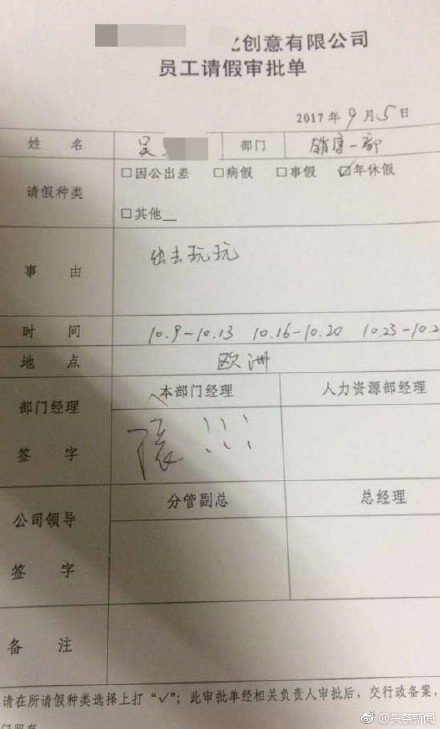 创意有限公司
员工请假审批单
2017年9月5日
姓 名 吴 部门 销售一部
请假种类 □因公出差 □病假 □事假 ☑年休假
□其他__
事 由 出去玩玩
时 间 10.9-10.13 10.16-10.20 10.23-10.2
地 点 欧洲
部门经理 本部门经理 人力资源部经理
签 字 滚!!!
公司领导 分管副总 总经理
签 字
备 注
请在所请假种类选择上打“√”；此审批单经相关负责人审批后，交行政备案，
门留存
@头条新闻